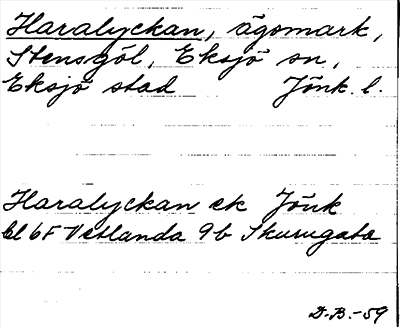 Haralyckan, ägomark,
Stensgöl, Eksjö sn,
Eksjö stad Jönk. l.
Haralyckan ek Jönk
bl 6F Vetlanda 9b Skurugata
D.B.-59